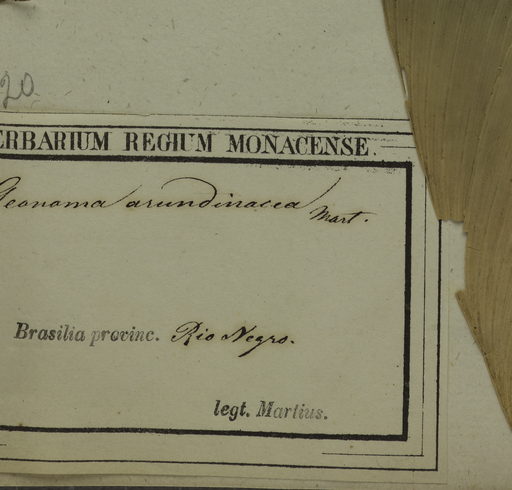 20
ERBARIUM REGIUM MONACENSE.
Geonoma arundinacea Mart.
Brasilia provinc. Rio Negro.
legt. Martius.